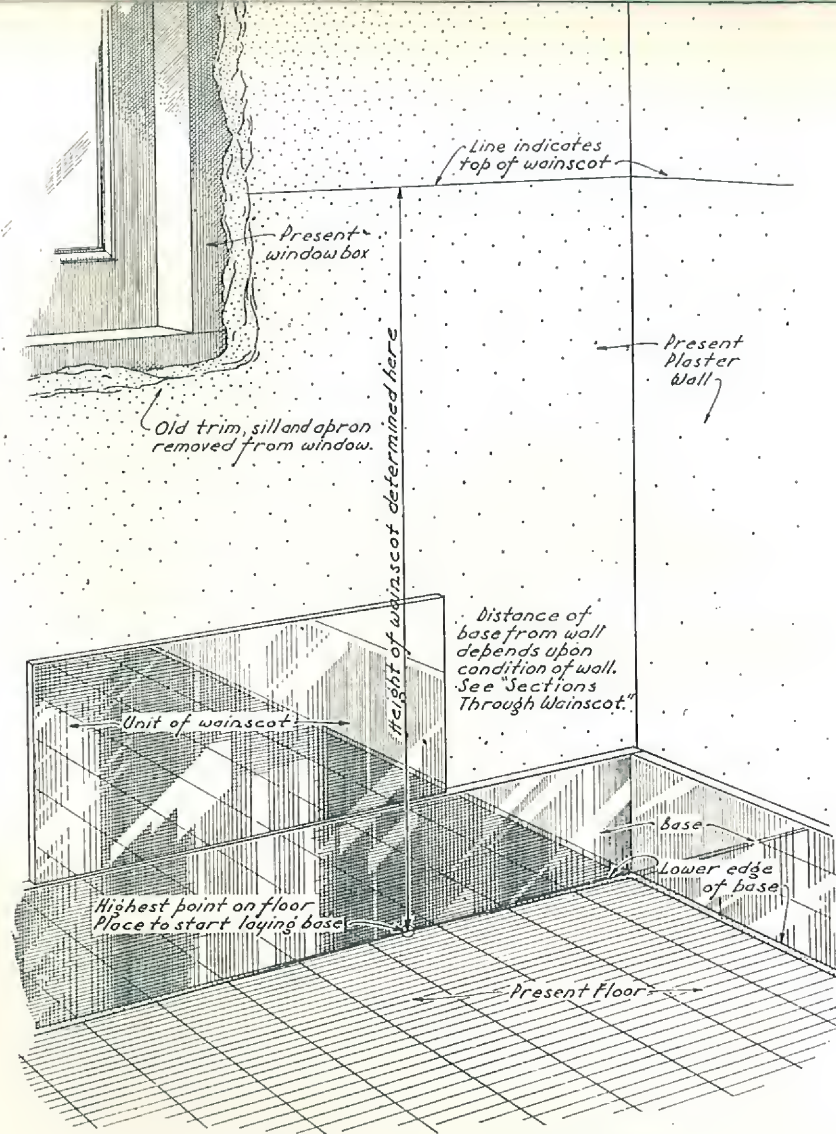 Line indicates
top of wainscot
Present
window box
Present
Plaster
Wall
Old trim, sill and apron
removed from window.
Height of wainscot determined here
Distance of
base from wall
depends upon
condition of wall.
See "Sections
Through Wainscot."
Unit of wainscot
Base
Lower edge
of base
Highest point on floor
Place to start laying base
Present Floor